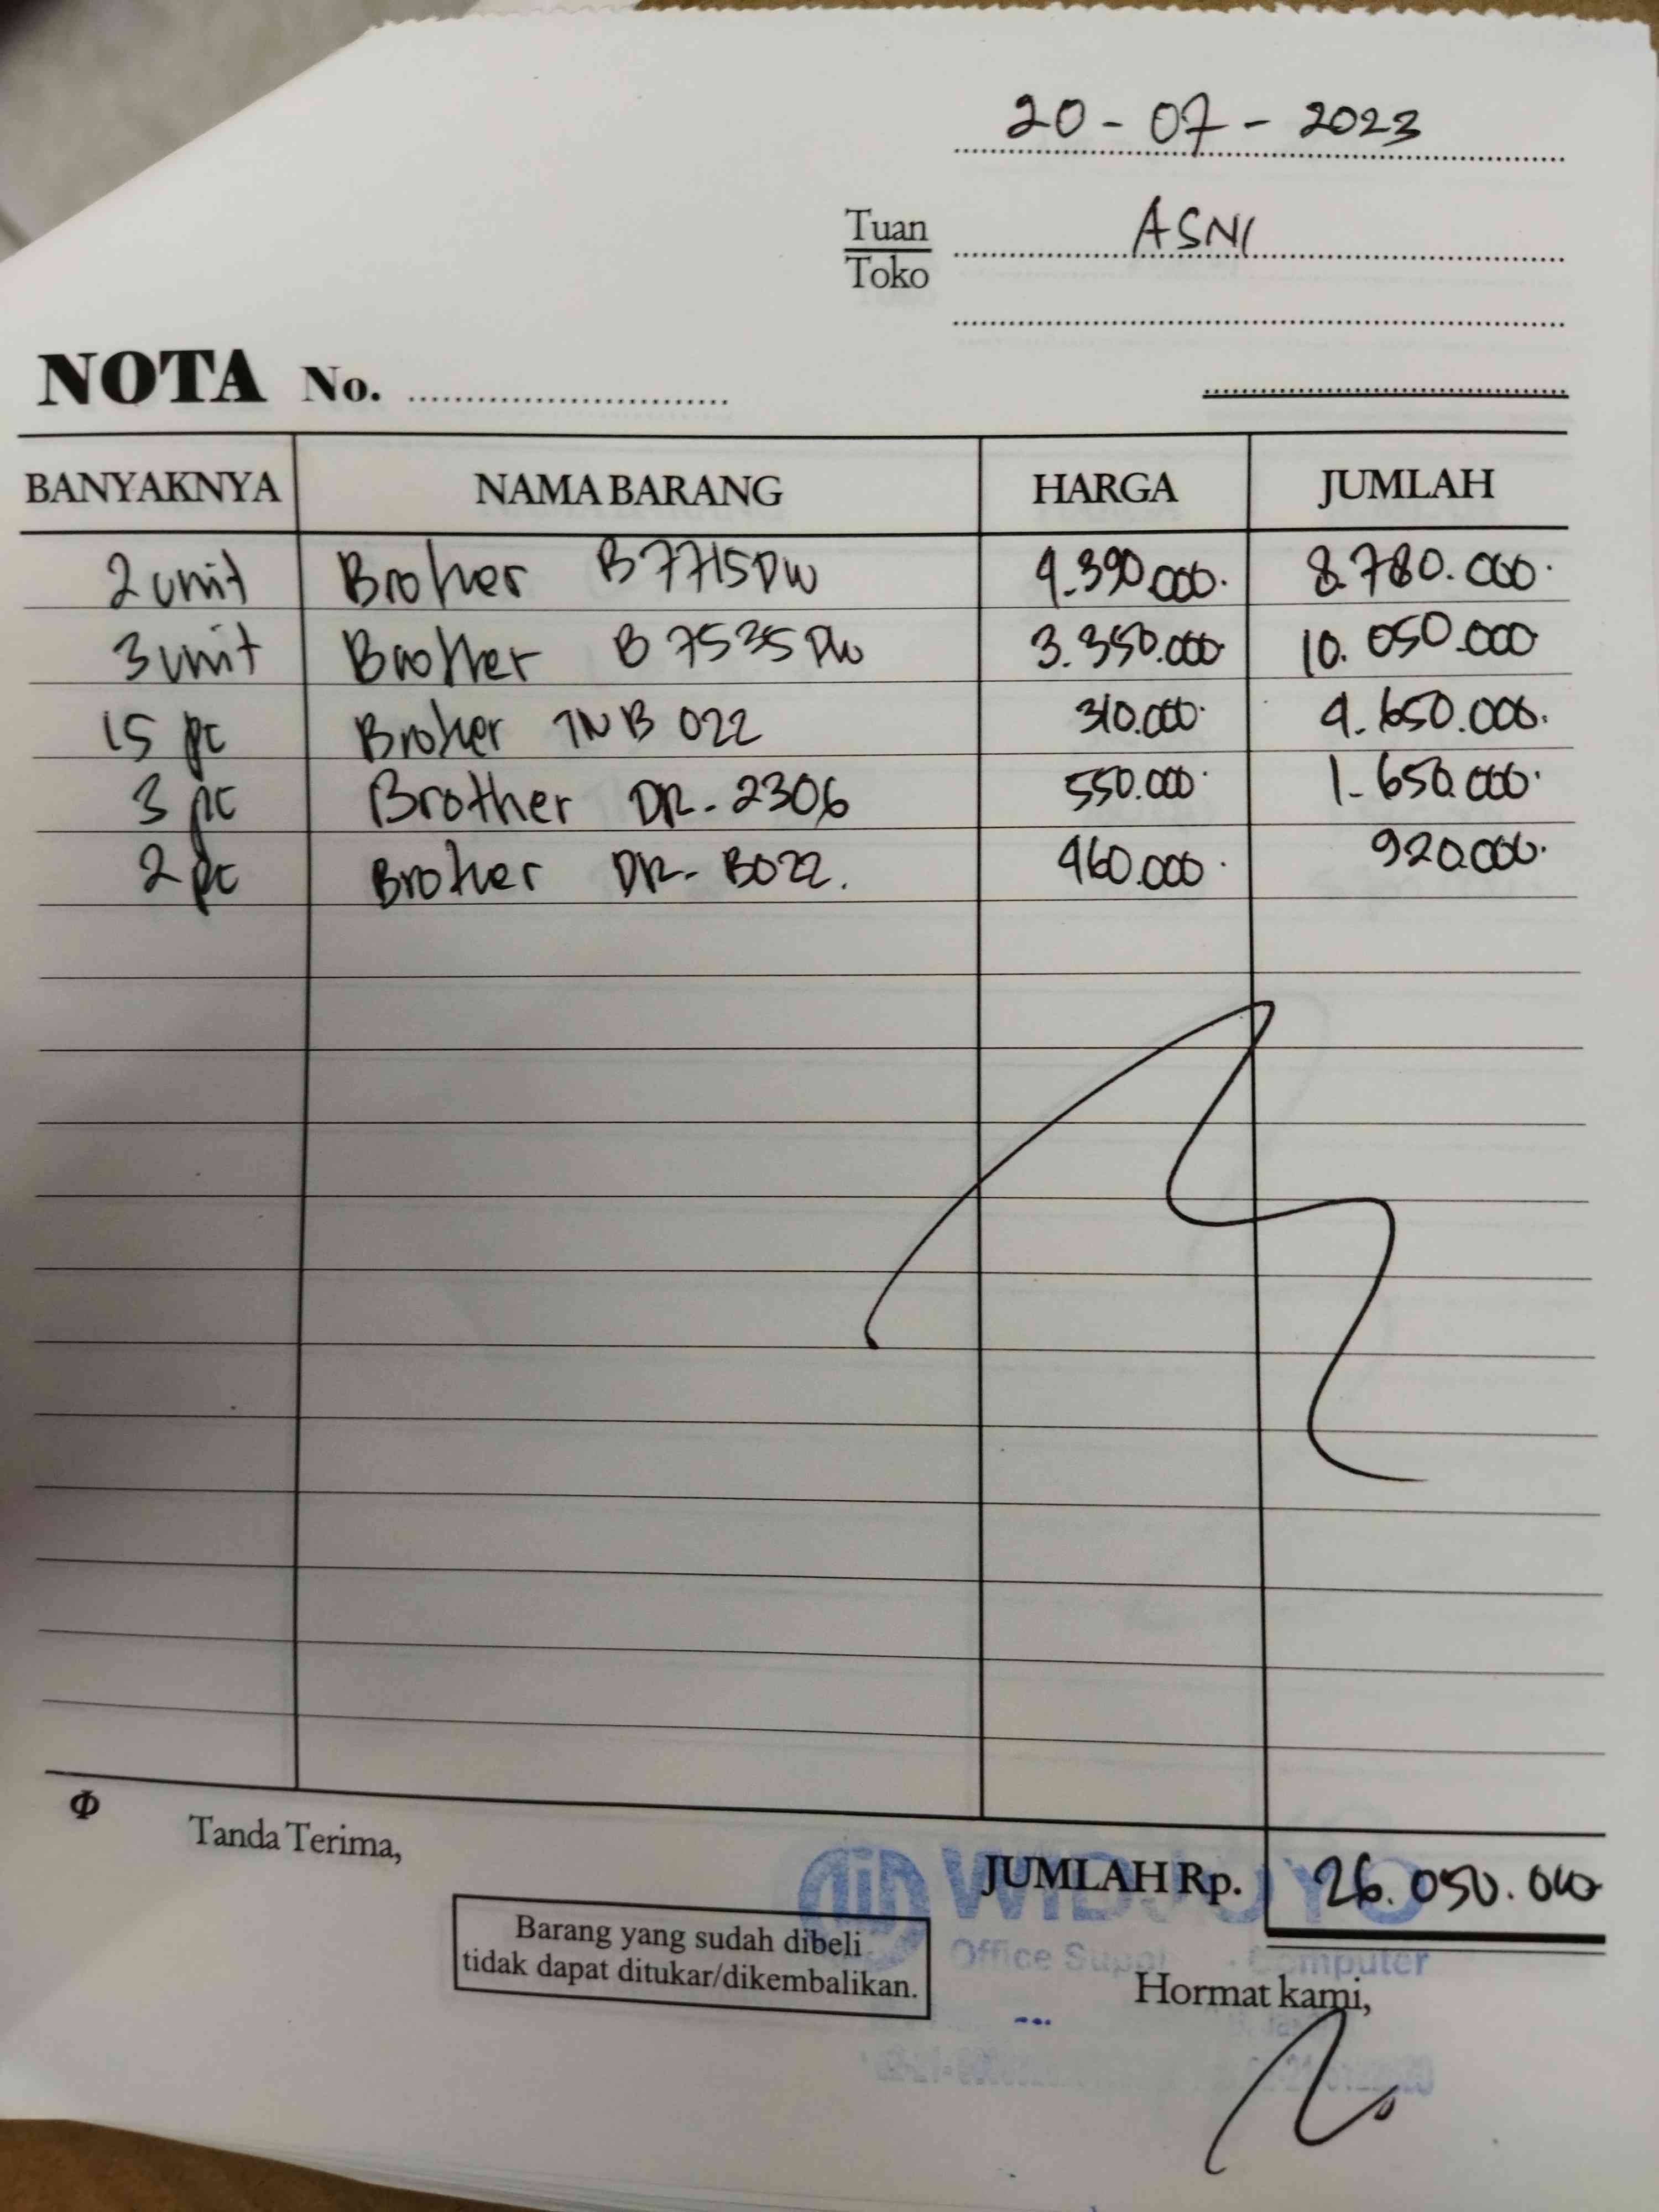 20-07-2023
Tuan
Toko
ASNI
NOTA No.
BANYAKNYA NAMA BARANG HARGA JUMLAH
2 unit Brother B7715DW 4.390.000 8.780.000
3 unit Brother B7535DW 3.350.000 10.050.000
15 pc Brother TNB 022 310.000 4.650.000
3 pc Brother DR-2306 550.000 1.650.000
2 pc Brother DR-B022. 460.000 920.000
Φ
Tanda Terima,
JUMLAH Rp. 26.050.000
Barang yang sudah dibeli
tidak dapat ditukar/dikembalikan.
Office Computer
Hormat kami,